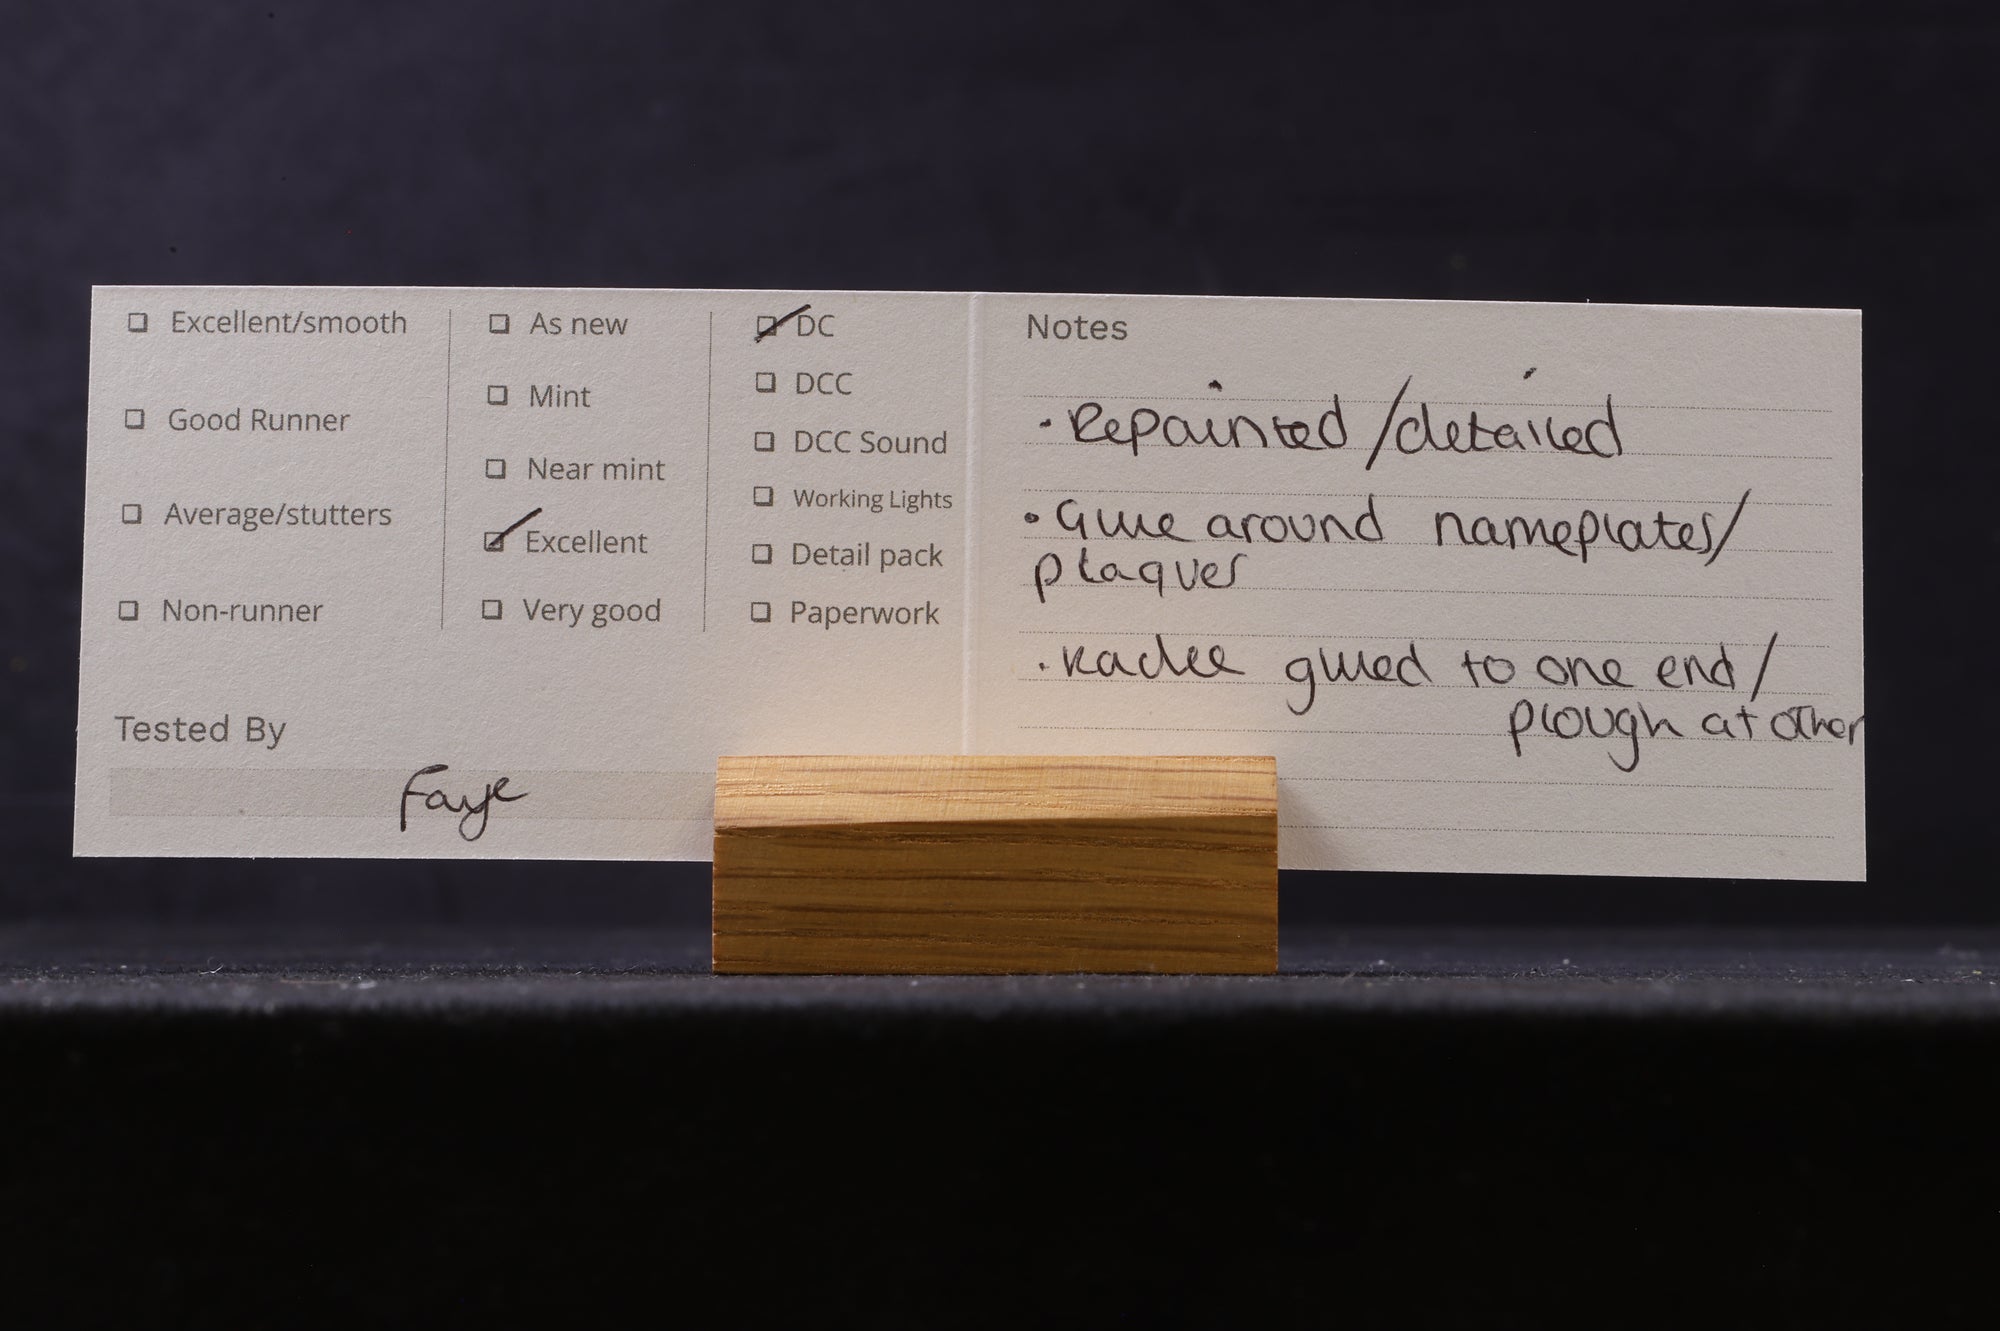 Excellent/smooth
Good Runner
Average/stutters
Non-runner
As new
Mint
Near mint
Excellent
Very good
DC
DCC
DCC Sound
Working Lights
Detail pack
Paperwork
Tested By
Faye
Notes
• Repainted/detailed
• Glue around nameplates/
plaques
• Kadee glued to one end/
plough at other